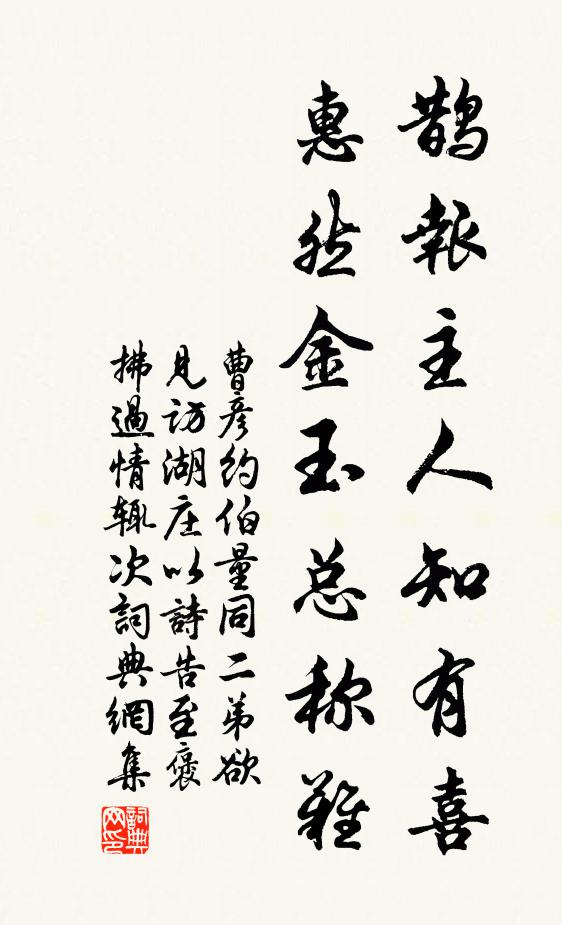 鹊報主人知有喜
惠然金玉总称難
曹彦约伯量同二弟欲
見访湖庄以詩告至褒
拂過情辄次詞典網集
詞典网印